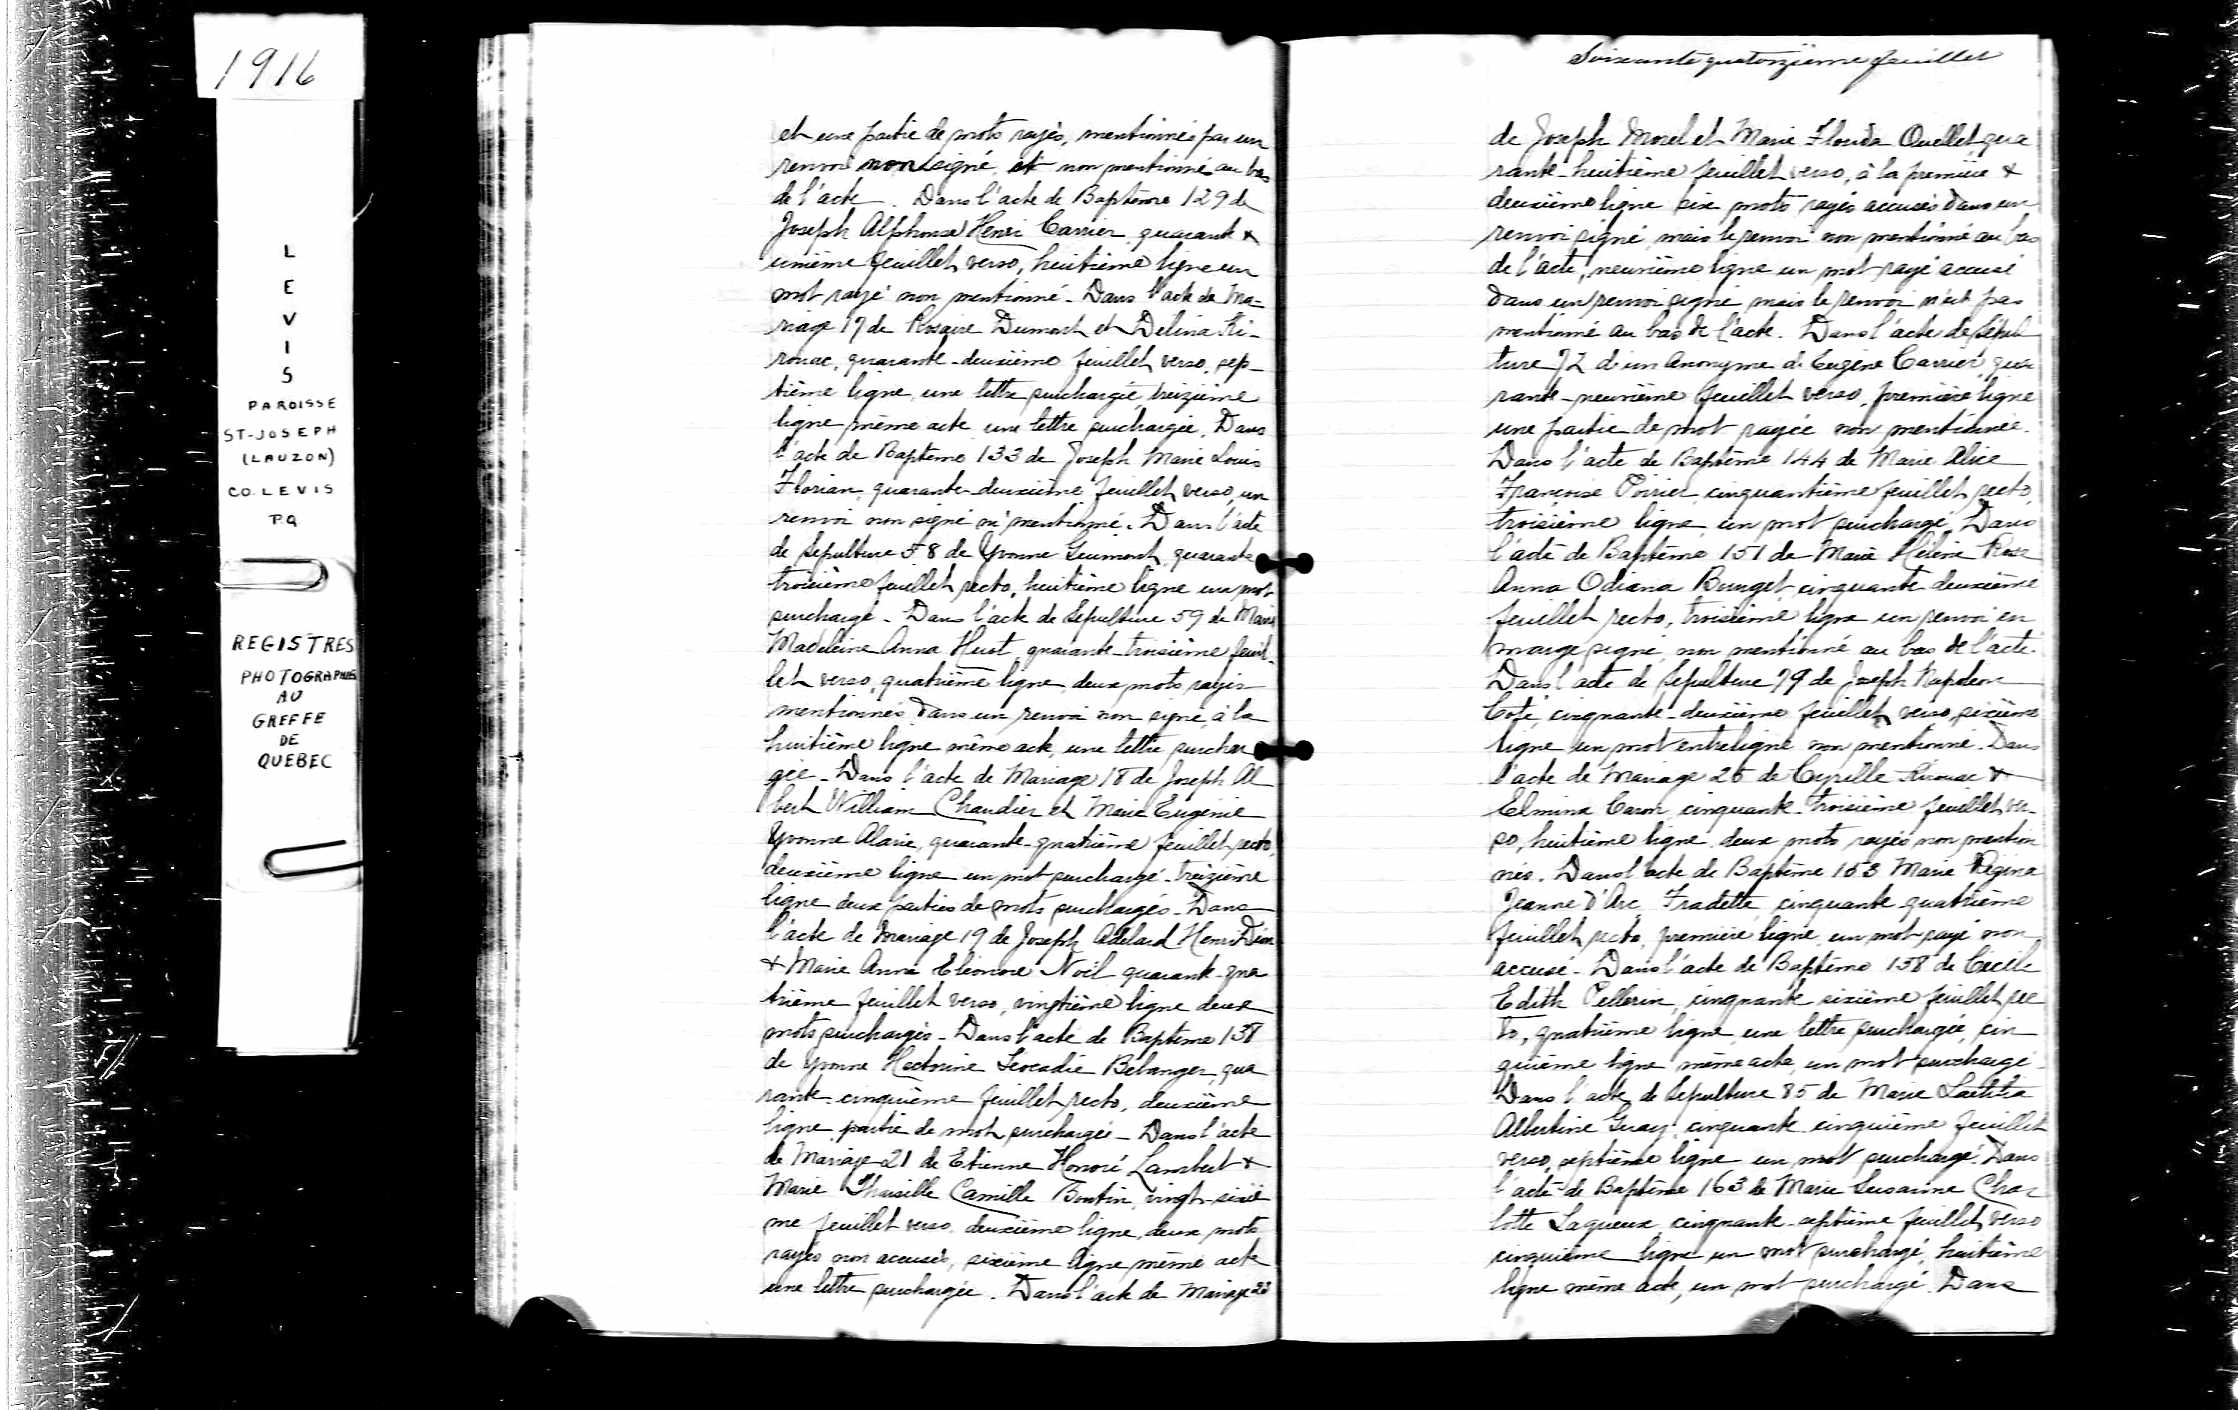 1916
L
E
V
I
S
PAROISSE
ST-JOSEPH
(LAUZON)
CO. LEVIS
P.Q
REGISTRES
PHOTOGRAPHIES
AU
GREFFE
DE
QUEBEC
et une partie de mots rayés, mentionnés par un
renvoi non signé et non mentionné au bas
de l'acte. Dans l'acte de Baptême 129 de
Joseph Alphonse Henri Carrier, quarante &
unième feuillet verso, huitième ligne un
mot rayé non mentionné - Dans l'acte de Ma-
riage 17 de Rosaire Dumont et Délina Ki-
rouac, quarante-deuxième feuillet verso, sep-
tième ligne, une lettre surchargée, treizième
ligne même acte une lettre surchargée. Dans
l'acte de Baptême 133 de Joseph Marie Louis
Florian, quarante-deuxième feuillet verso, un
renvoi non signé ni mentionné. Dans l'acte
de Sépulture 58 de Yvonne Guimont, quarante
troisième feuillet recto, huitième ligne un mot
surchargé - Dans l'acte de Sépulture 59 de Marie
Madeleine Anna Huot, quarante-troisième feuil-
let verso, quatrième ligne, deux mots rayés
mentionnés dans un renvoi non signé, à la
huitième ligne même acte, une lettre surchar
gée - Dans l'acte de Mariage 18 de Joseph Al
bert William Chandler et Marie Eugénie
Yvonne Alarie, quarante-quatrième feuillet recto,
deuxième ligne un mot surchargé - treizième
ligne deux parties de mots surchargés - Dans
l'acte de Mariage 19 de Joseph Adélard Henri Dion
& Marie Anna Eléonore Noël quarante-qua
trième feuillet verso, vingtième ligne deux
mots surchargés - Dans l'acte de Baptême 138
de Yvonne Hectorine Léocadie Bélanger, qua
rante-cinquième feuillet recto, deuxième
ligne, partie de mot surchargée - Dans l'acte
de Mariage 21 de Etienne Honoré Lambert &
Marie Tharsille Camille Boutin, vingt-sixiè
me feuillet verso, deuxième ligne, deux mots
rayés non accusés, sixième ligne même acte
une lettre surchargée. Dans l'acte de Mariage 23
Soixante quatorzième feuillet
de Joseph Morel et Marie Florida Ouellet, qua
rante-huitième feuillet verso, à la première &
deuxième ligne six mots rayés accusés dans un
renvoi signé, mais le renvoi non mentionné au bas
de l'acte, neuvième ligne un mot rayé accusé
dans un renvoi signé mais le renvoi n'est pas
mentionné au bas de l'acte. Dans l'acte de Sépul
ture 72 d'un Anonyme d. Eugène Carrier, qua
rante-neuvième feuillet verso, première ligne
une partie de mot rayée non mentionnée.
Dans l'acte de Baptême 144 de Marie Alice
Françoise Poirier, cinquantième feuillet recto,
troisième ligne, un mot surchargé. Dans
l'acte de Baptême 151 de Marie Hélène Rose
Anna Odiana cinquante deuxième
feuillet recto, troisième ligne un renvoi en
marge signé, non mentionné au bas de l'acte.
Dans l'acte de Sépulture 79 de Joseph Napoléon
Coté, cinquante-deuxième feuillet verso, sixième
ligne un mot entreligné non mentionné. Dans
l'acte de Mariage 26 de Cyrille Kirouac &
Elmina Caron, cinquante-troisième feuillet ver-
so, huitième ligne deux mots rayés non mention
nés. Dans l'acte de Baptême 153 Marie Régina
Jeanne d'Arc Fradette, cinquante quatrième
feuillet recto, première ligne, un mot rayé non
accusé - Dans l'acte de Baptême 158 de Cécile
Edith Pellerin, cinquante sixième feuillet rec
to, quatrième ligne une lettre surchargée, cin
quième ligne même acte, un mot surchargé -
Dans l'acte de Sépulture 85 de Marie Laetitia
Albertine Guay, cinquante cinquième feuillet
verso, septième ligne un mot surchargé. Dans
l'acte de Baptême 163 de Marie Susanne Char
lotte Lagueux, cinquante-septième feuillet, verso
cinquième ligne un mot surchargé, huitième
ligne même acte, un mot surchargé. Dans